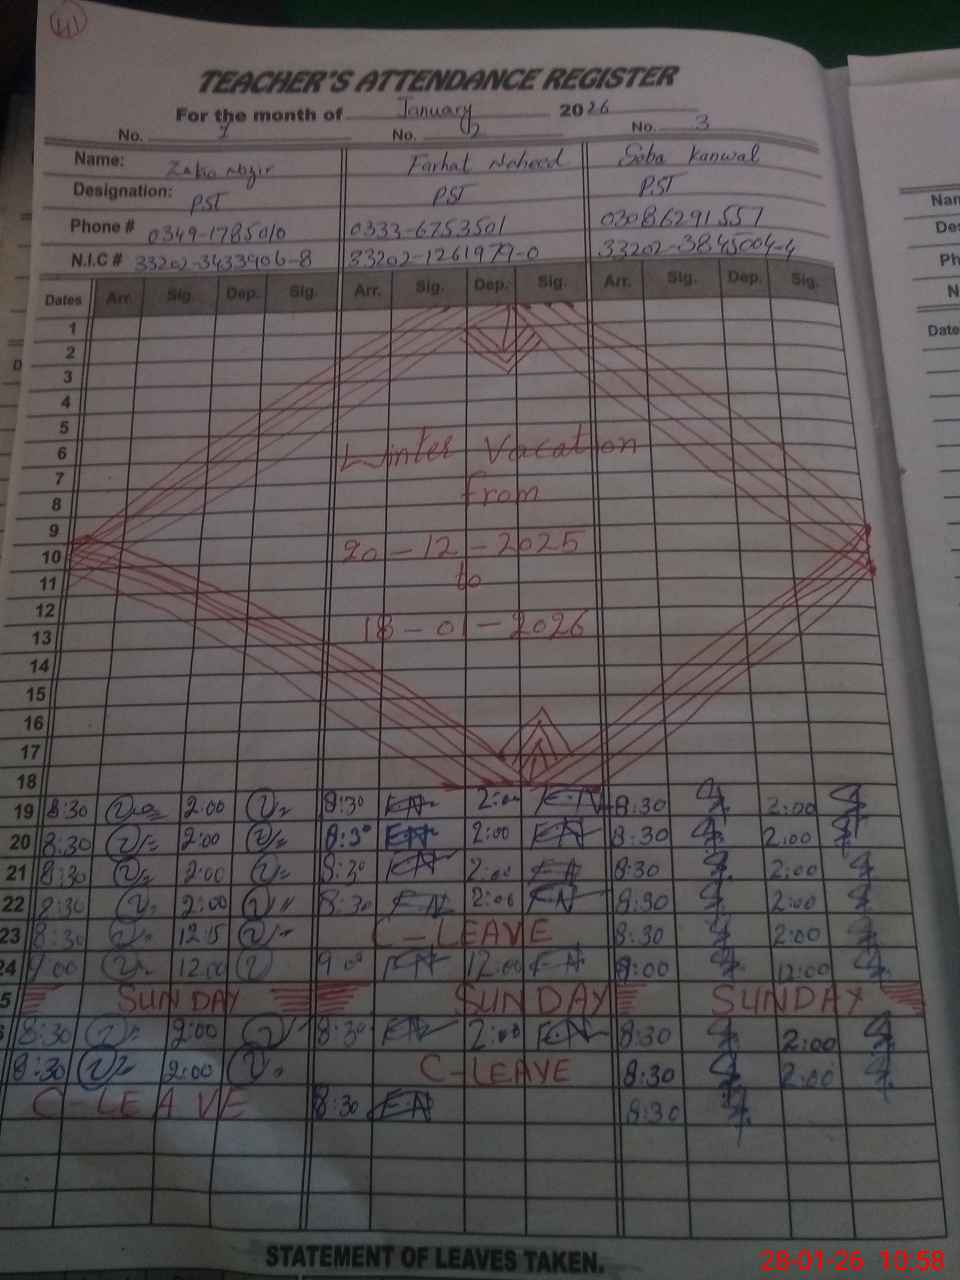 41
TEACHER'S ATTENDANCE REGISTER
For the month of January 2026
No. 1 No. 2 No. 3
Name: Farhat Naheed Saba Kanwal
Designation: PST PST PST
Phone # 0349-1785010 0333-6753501 03086291557
N.I.C # 33202-3433906-8 33202-1261979-0 33202-3845004-4
Dates Arr. Sig. Dep. Sig. Arr. Sig. Dep. Sig. Arr. Sig. Dep. Sig.
1
2
3
4
5
6 Winter Vacation
7
8 from
9
10 20-12-2025
11 to
12
13 18-01-2026
14
15
16
17
18
19 8:30 2:00 8:30 FN 2:00 FN 8:30 2:00
20 8:30 2:00 8:30 FN 2:00 FN 8:30 2:00
21 8:30 2:00 8:30 FN 2:00 FN 8:30 2:00
22 8:30 2:00 8:30 FN 2:00 FN 8:30 2:00
23 8:30 12:15 C-LEAVE 8:30 2:00
24 9:00 12:00 9:00 FN 12:00 FN 9:00 12:00
5 SUNDAY SUNDAY SUNDAY
8:30 2:00 8:30 FN 2:00 FN 8:30 2:00
8:30 2:00 C-LEAVE 8:30 2:00
C-LEAVE 8:30 FN 8:30
STATEMENT OF LEAVES TAKEN.
28-01-26 10:58
Nam
Des
Ph
N
Date